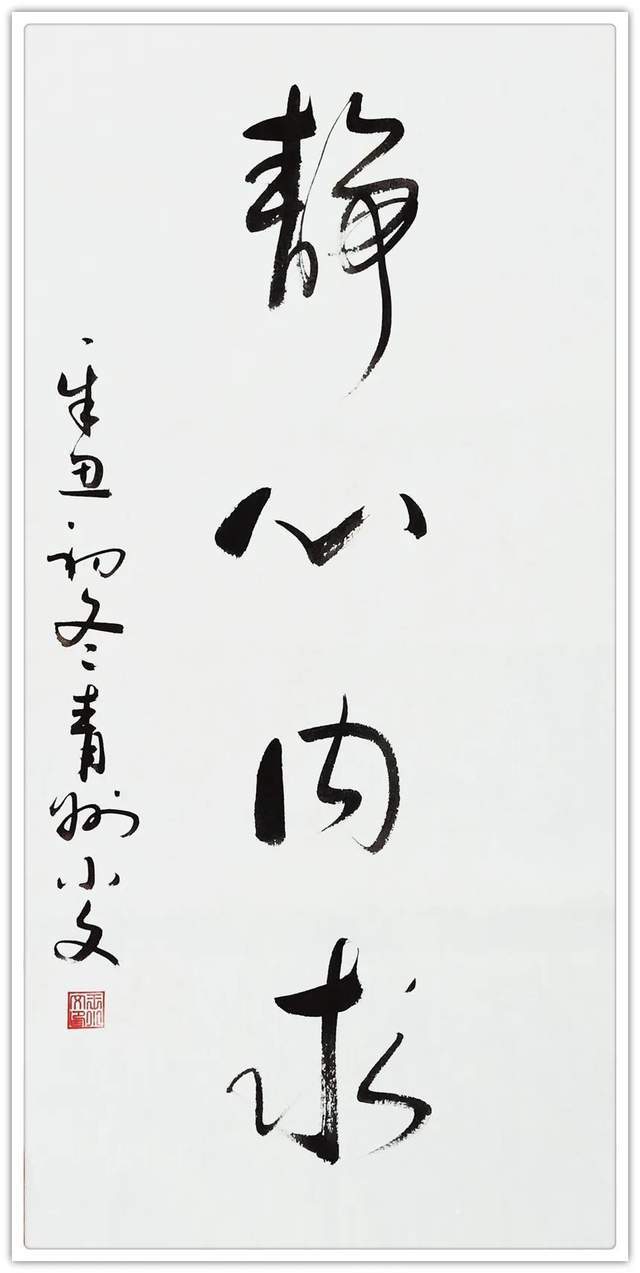 静心内求
辛丑初冬青州小文